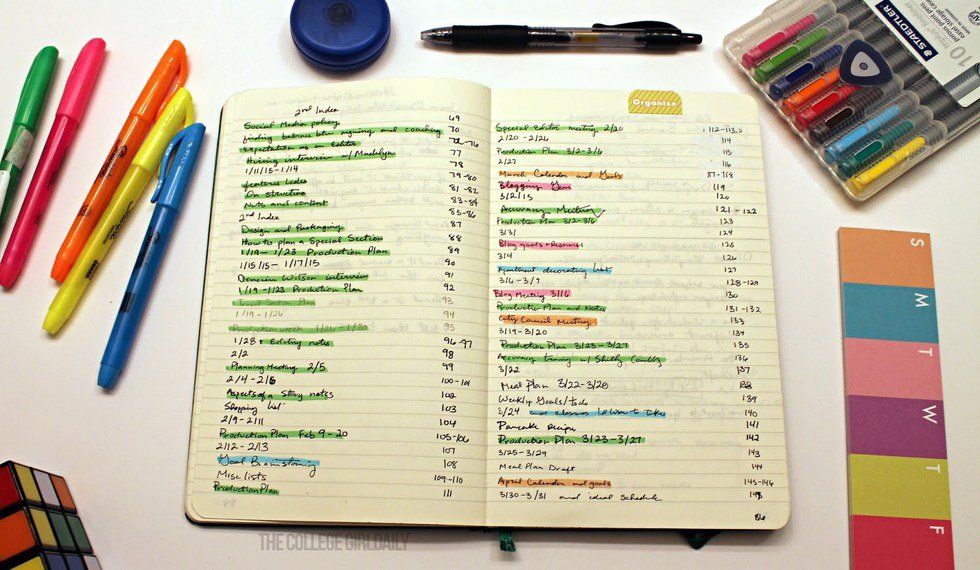 2nd Index
Social Media policy 69
finding balance btw reigning and coaching 70
expectation as an Editor 72-76
Hiring interview w/ Madelyn 77
1/11/15-1/14 78
features ledes 79-80
On structure 81-82
Notes and content 83-84
2nd Index 85-86
Design and Packaging 87
How to plan a Special Section 88
1/19-1/20 Production Plan 89
1/15/15-1/17/15 90
Wilson interview 91
1/19-1/23 Production Plan 92
Plan 93
1/19-1/20 94
Production week 1/26-1/30 95
1/28 & Editing notes 96-97
2/2 98
Planning Meeting 2/5 99
2/4-2/6 100-101
Aspects of a Story notes 102
Shopping List 103
2/9-2/11 104
Production Plan Feb 9-20 105-106
2/12-2/13 107
Goal Brainstorming 108
Misc lists 109-110
Production Plan 111
Organize
Special Editor meeting 2/20 112-113
2/20-2/26 114
Production Plan 3/2-3/6 115
2/27 116
March Calendar and Goals 117-118
Blogging 119
3/2/15 120
Accuracy Meeting 121-122
Production Plan 3/2-3/6 123
3/31 124
Blog goals & Resources 125
3/4 126
Apartment decorating list 127
3/6-3/7 128-129
Blog Meeting 3/16 130
Production Plan and Notes 131-132
City Council Meeting 133
3/19-3/20 134
Production Plan 3/23-3/27 135
Accuracy training w/ Shelby 136
3/22 137
Meal Plan 3/22-3/28 138
Weekly Goals/to do 139
3/24 and classes to take 140
Pancake recipe 141
Production Plan 3/23-3/27 142
3/25-3/29 143
Meal Plan Draft 144
April Calendar and goals 145-146
3/30-3/31 and ideal schedule
STAEDTLER
10
triplus fineliner
S
M
T
W
T
F
THE COLLEGE GIRL DAILY